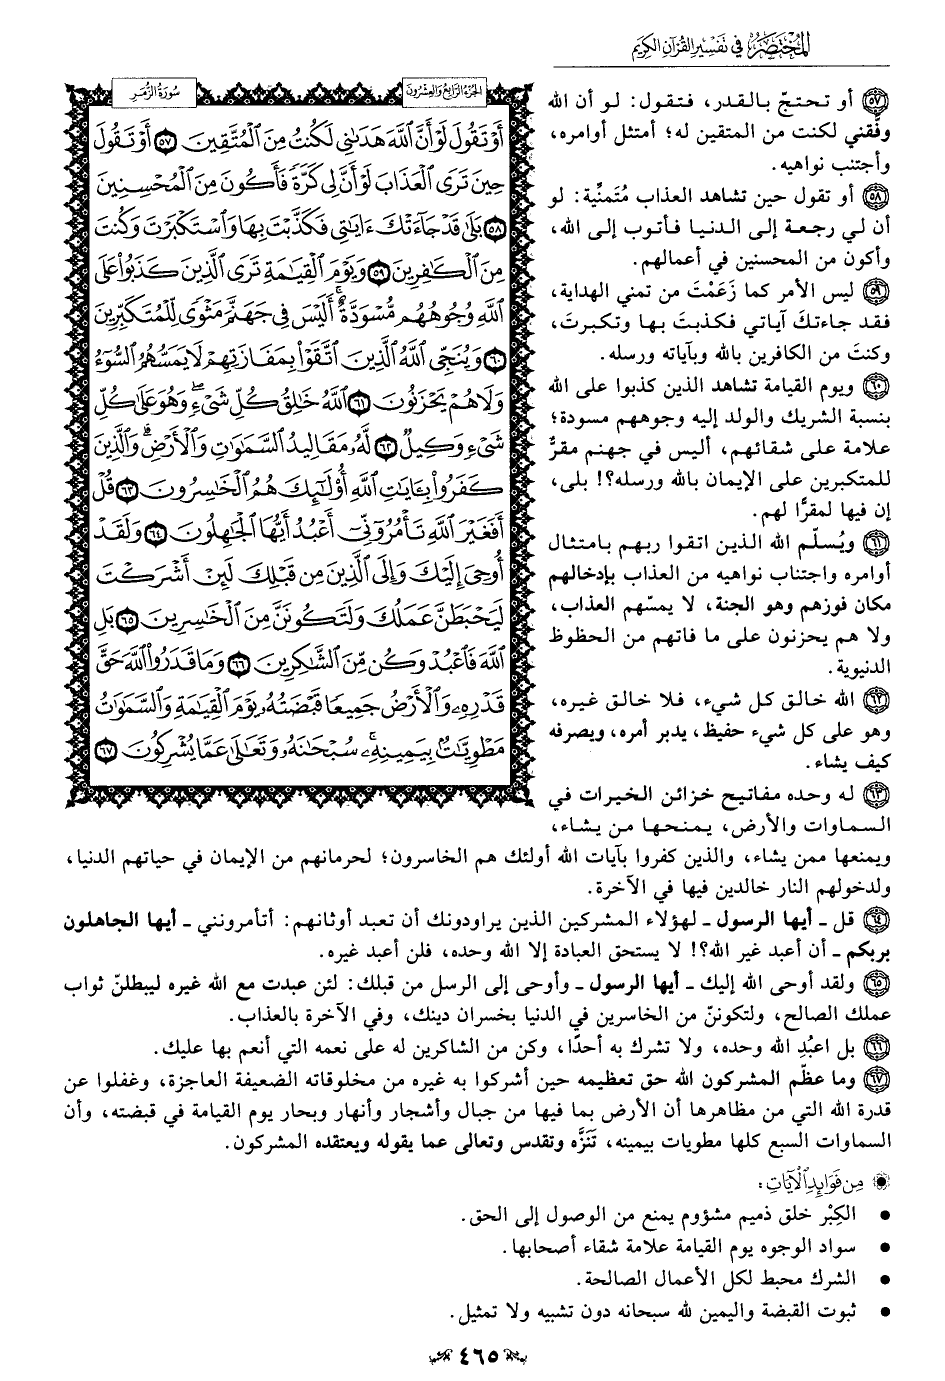 المختصر في تفسير القرآن الكريم
الجزء الرابع والعشرون
سورة الزمر
أَوْ تَقُولَ لَوْ أَنَّ اللَّهَ هَدَىٰنِي لَكُنتُ مِنَ الْمُتَّقِينَ ٥٧ أَوْ تَقُولَ
حِينَ تَرَى الْعَذَابَ لَوْ أَنَّ لِي كَرَّةً فَأَكُونَ مِنَ الْمُحْسِنِينَ
٥٨ بَلَىٰ قَدْ جَاءَتْكَ ءَايَٰتِي فَكَذَّبْتَ بِهَا وَاسْتَكْبَرْتَ وَكُنتَ
مِنَ الْكَٰفِرِينَ ٥٩ وَيَوْمَ الْقِيَٰمَةِ تَرَى الَّذِينَ كَذَبُوا عَلَى
اللَّهِ وُجُوهُهُم مُّسْوَدَّةٌ ۚ أَلَيْسَ فِي جَهَنَّمَ مَثْوًى لِّلْمُتَكَبِّرِينَ
٦٠ وَيُنَجِّي اللَّهُ الَّذِينَ اتَّقَوْا بِمَفَازَتِهِمْ لَا يَمَسُّهُمُ السُّوءُ
وَلَا هُمْ يَحْزَنُونَ ٦١ اللَّهُ خَٰلِقُ كُلِّ شَيْءٍ ۖ وَهُوَ عَلَىٰ كُلِّ
شَيْءٍ وَكِيلٌ ٦٢ لَّهُ مَقَالِيدُ السَّمَٰوَٰتِ وَالْأَرْضِ ۗ وَالَّذِينَ
كَفَرُوا بِـَٔايَٰتِ اللَّهِ أُولَٰئِكَ هُمُ الْخَٰسِرُونَ ٦٣ قُلْ
أَفَغَيْرَ اللَّهِ تَأْمُرُونِّي أَعْبُدُ أَيُّهَا الْجَٰهِلُونَ ٦٤ وَلَقَدْ
أُوحِيَ إِلَيْكَ وَإِلَى الَّذِينَ مِن قَبْلِكَ لَئِنْ أَشْرَكْتَ
لَيَحْبَطَنَّ عَمَلُكَ وَلَتَكُونَنَّ مِنَ الْخَٰسِرِينَ ٦٥ بَلِ
اللَّهَ فَاعْبُدْ وَكُن مِّنَ الشَّٰكِرِينَ ٦٦ وَمَا قَدَرُوا اللَّهَ حَقَّ
قَدْرِهِ وَالْأَرْضُ جَمِيعًا قَبْضَتُهُ يَوْمَ الْقِيَٰمَةِ وَالسَّمَٰوَٰتُ
مَطْوِيَّٰتٌ بِيَمِينِهِ ۚ سُبْحَٰنَهُ وَتَعَٰلَىٰ عَمَّا يُشْرِكُونَ ٦٧
٥٧ أو تحتجّ بالقدر، فتقول: لو أن الله
وفَّقني لكنت من المتقين له؛ أمتثل أوامره،
وأجتنب نواهيه.
٥٨ أو تقول حين تشاهد العذاب مُتَمنِّية: لو
أن لي رجعة إلى الدنيا فأتوب إلى الله،
وأكون من المحسنين في أعمالهم.
٥٩ ليس الأمر كما زَعَمْتَ من تمني الهداية،
فقد جاءتكَ آياتي فكذبتَ بها وتكبرتَ،
وكنتَ من الكافرين بالله وبآياته ورسله.
٦٠ ويوم القيامة تشاهد الذين كذبوا على الله
بنسبة الشريك والولد إليه وجوههم مسودة؛
علامة على شقائهم، أليس في جهنم مقرٌّ
للمتكبرين على الإيمان بالله ورسله؟! بلى،
إن فيها لمقرًّا لهم.
٦١ ويُسلّم الله الذين اتقوا ربهم بامتثال
أوامره واجتناب نواهيه من العذاب بإدخالهم
مكان فوزهم وهو الجنة، لا يمسّهم العذاب،
ولا هم يحزنون على ما فاتهم من الحظوظ
الدنيوية.
٦٢ الله خالق كل شيء، فلا خالق غيره،
وهو على كل شيء حفيظ، يدبر أمره، ويصرفه
كيف يشاء.
٦٣ له وحده مفاتيح خزائن الخيرات في
السماوات والأرض، يمنحها من يشاء،
ويمنعها ممن يشاء، والذين كفروا بآيات الله أولئك هم الخاسرون؛ لحرمانهم من الإيمان في حياتهم الدنيا،
ولدخولهم النار خالدين فيها في الآخرة.
٦٤ قل ـ أيها الرسول ـ لهؤلاء المشركين الذين يراودونك أن تعبد أوثانهم: أتأمرونني ـ أيها الجاهلون
بربكم ـ أن أعبد غير الله؟! لا يستحق العبادة إلا الله وحده، فلن أعبد غيره.
٦٥ ولقد أوحى الله إليك ـ أيها الرسول ـ وأوحى إلى الرسل من قبلك: لئن عبدت مع الله غيره ليبطلنّ ثواب
عملك الصالح، ولتكوننّ من الخاسرين في الدنيا بخسران دينك، وفي الآخرة بالعذاب.
٦٦ بل اعبُدِ الله وحده، ولا تشرك به أحدًا، وكن من الشاكرين له على نعمه التي أنعم بها عليك.
٦٧ وما عظّم المشركون الله حق تعظيمه حين أشركوا به غيره من مخلوقاته الضعيفة العاجزة، وغفلوا عن
قدرة الله التي من مظاهرها أن الأرض بما فيها من جبال وأشجار وأنهار وبحار يوم القيامة في قبضته، وأن
السماوات السبع كلها مطويات بيمينه، تَنَزَّه وتقدس وتعالى عما يقوله ويعتقده المشركون.
من فوائد الآيات:
• الكِبْر خلق ذميم مشؤوم يمنع من الوصول إلى الحق.
• سواد الوجوه يوم القيامة علامة شقاء أصحابها.
• الشرك محبط لكل الأعمال الصالحة.
• ثبوت القبضة واليمين لله سبحانه دون تشبيه ولا تمثيل.
٤٦٥